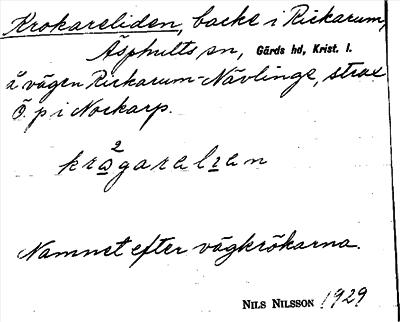 Krokareliden, backe i Rickarum,
Äsphults sn, Gärds hd, Krist. l.
å vägen Rickarum-Nävlinge, strax
Ö. p i Nockarp.
2
krɑgaralɪan
Namnet efter vägkrökarna.
NILS NILSSON 1929